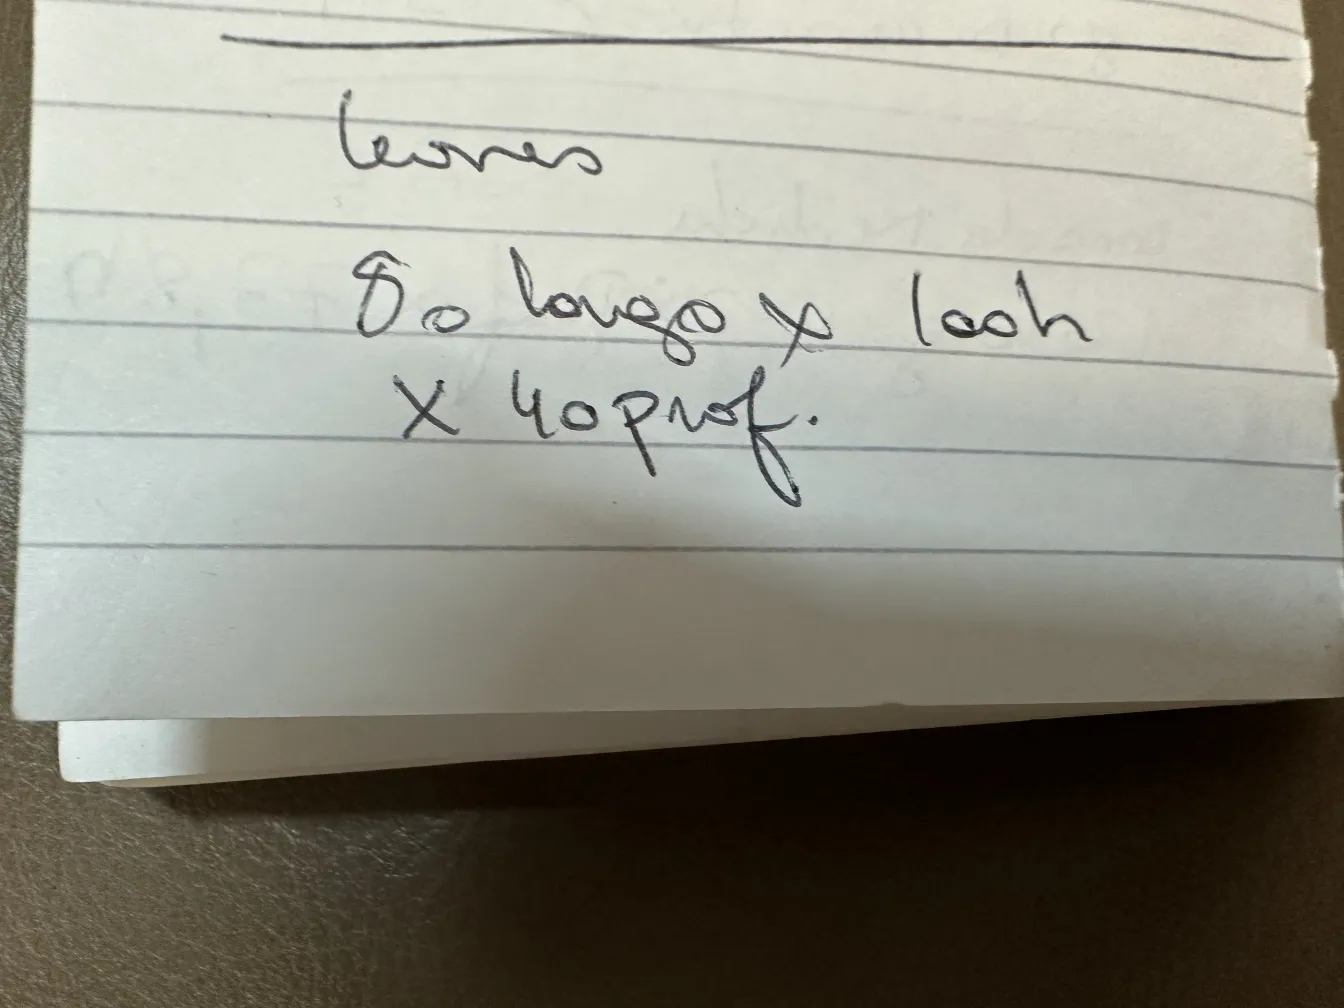 leones
80 largo x 100h
x 40 prof.